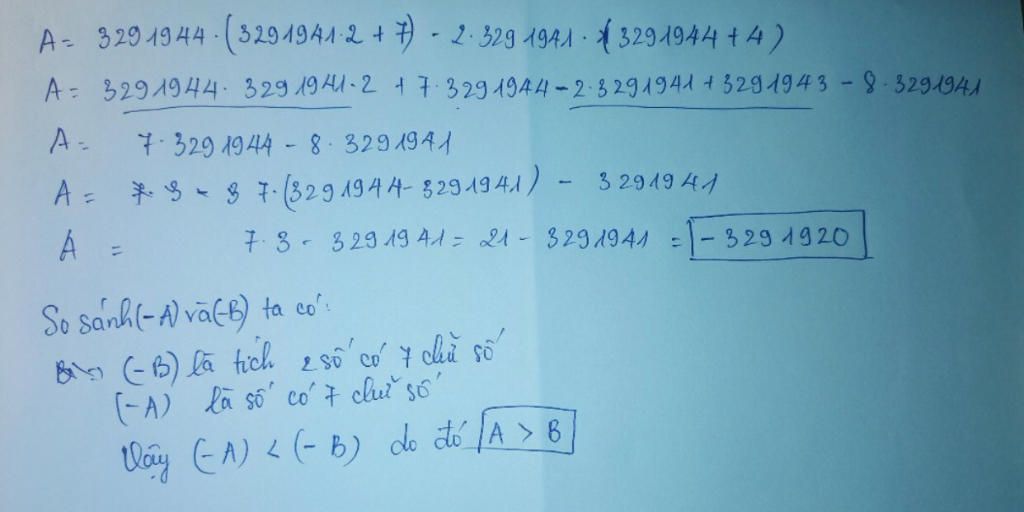 A = 3291944·(3291941·2 + 7) - 2·3291941·(3291944 + 4)
A = 3291944·3291941·2 + 7·3291944 - 2·3291941 + 3291943 - 8·3291941
A = 7·3291944 - 8·3291941
A = 7·(3291944 - 3291941) - 3291941
A = 7·3 - 3291941 = 21 - 3291941 = -3291920
So sánh (-A) và (-B) ta có:
(-B) là tích 2 số có 7 chữ số
(-A) là số có 7 chữ số
Vậy (-A) < (-B) do đó A > B